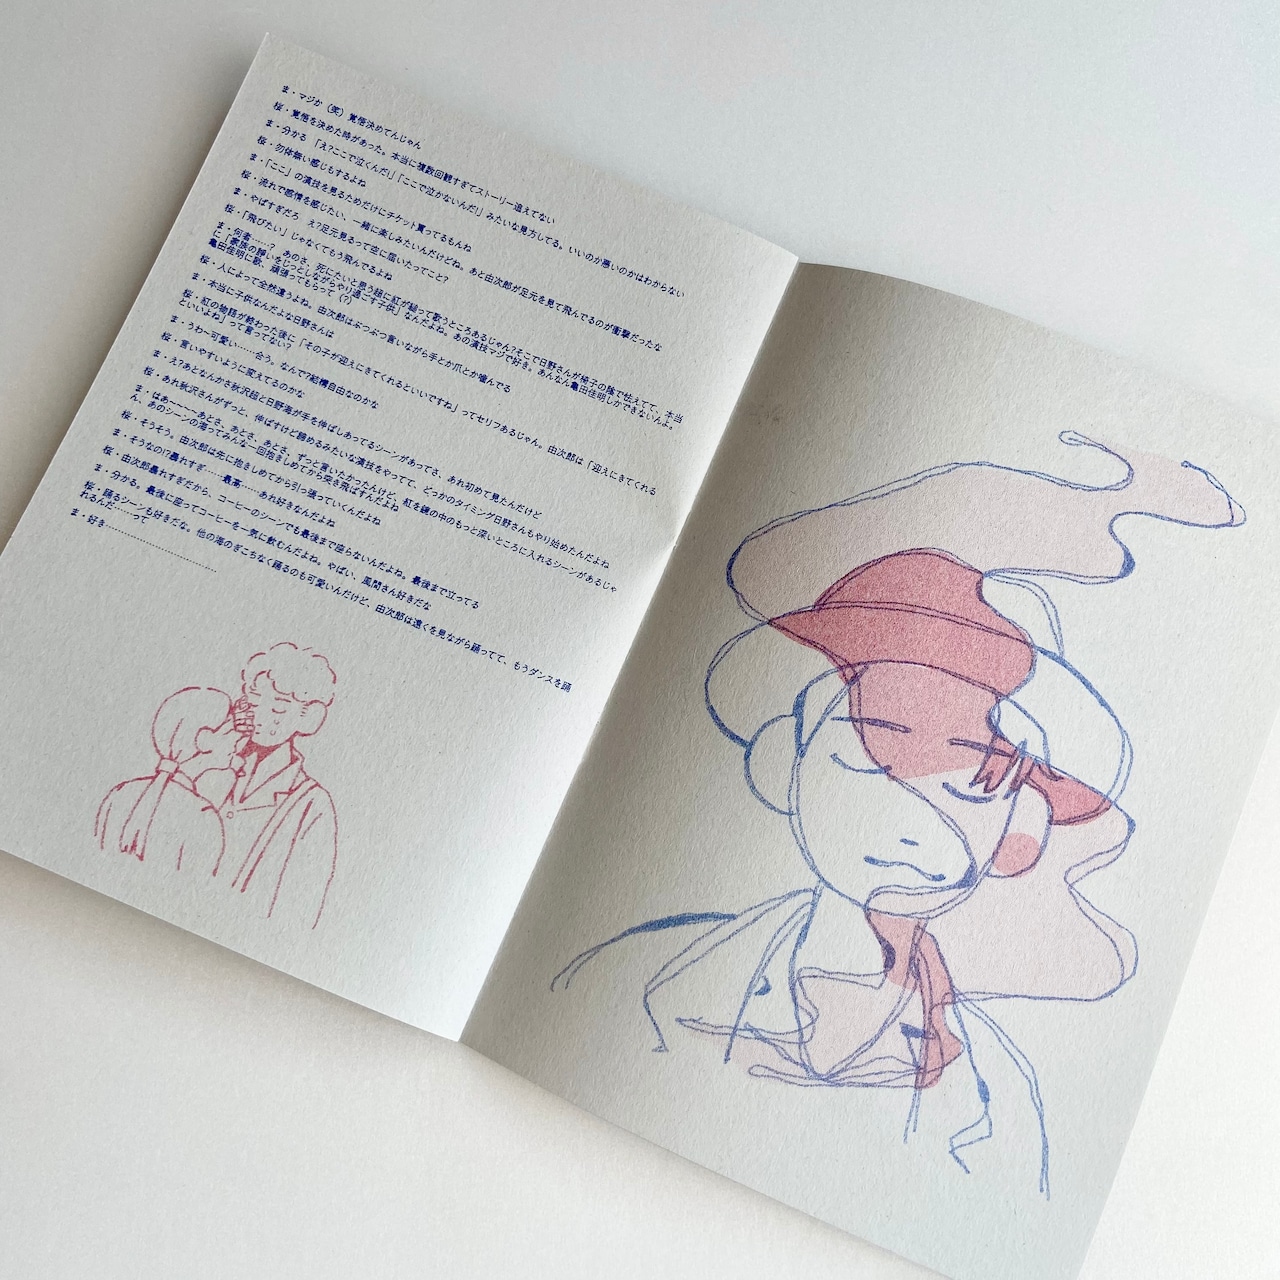 ま・マジか（笑）覚悟決めてんじゃん
桜・覚悟を決めた時があった。本当に複数回観すぎてストーリー追えてない
ま・分かる 「え?ここで泣くんだ!」「ここで泣かないんだ!」みたいな見方してる。いいのか悪いのかはわからない
桜・勿体無い感じもするよね
ま・「ここ」の演技を見るためだけにチケット買ってるもんね
桜・流れで感情を感じたい、一緒に楽しみたいんだけどね。あと由次郎が足元を見て飛んでるのが衝撃だったな
ま・やばすぎだろ え?足元見るって空に届いたってこと?
桜・「飛びたい」じゃなくてもう飛んでるよね
ま・何者……? あのさ、死にたいと思う超に紅が縋って歌うところあるじゃん?そこで日野さんが椅子の陰で怯えてて、本当
に「家族の諍いをじっとしながらやり過ごす子供」なんだよね。あの演技マジで好き。あんなん亀田佳明しかできないんよ。
亀田佳明に歌、頑張ってもらって（?）
桜・人によって全然違うよね。由次郎はぶつぶつ言いながら手とか爪とか噛んでる
ま・本当に子供なんだよな日野さんは
桜・紅の物語が終わった後に「その子が迎えにきてくれるといいですね」ってセリフあるじゃん。由次郎は「迎えにきてくれる
といいよね」って言ってない?
ま・うわー可愛い……合う。なんで?結構自由なのかな
桜・言いやすいように変えてるのかな
ま・え?あとなんかさ秋沢超と日野海が手を伸ばしあってるシーンがあってさ、あれ初めて見たんだけど
桜・あれ秋沢さんがずっと、伸ばすけど諦めるみたいな演技をやってて、どっかのタイミング日野さんもやり始めたんだよね
ま・はぁ〜〜〜〜あとさ、あとさ、あとさ、ずっと言いたかったんけど、紅を鏡の中のもっと深いところに入れるシーンがあるじゃ
ん、あのシーンの海ってみんな一回抱きしめてから突き飛ばすんだよね
桜・そうそう。由次郎は先に抱きしめてから引っ張っていくんだよね
ま・そうなの!?暴れすぎ……最高……あれ好きなんだよね
桜・由次郎暴れすぎだから、コーヒーのシーンでも最後まで座らないんだよね。最後まで立ってる
ま・分かる。最後に座ってコーヒーを一気に飲むんだよね。やばい、風間さん好きだな
桜・踊るシーンも好きだな。他の海のぎこちなく踊るのも可愛いんだけど、由次郎は遠くを見ながら踊ってて、もうダンスを踊
れるんだ……って
ま・好き……………………………………